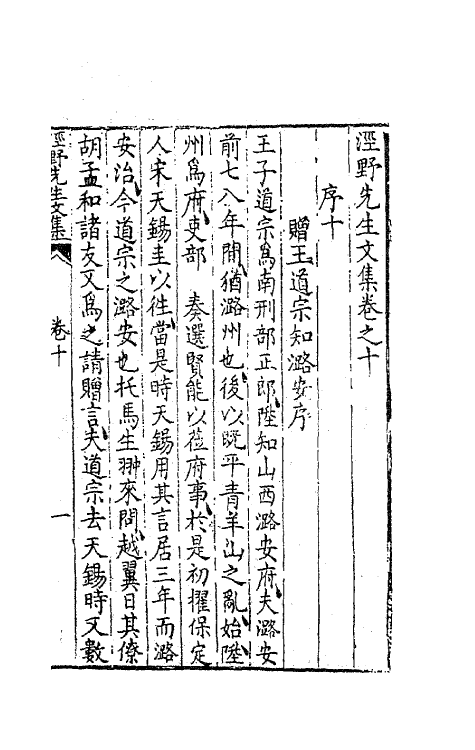 涇野先生文集卷之十
序十
贈王道宗知潞安序
王子道宗為南刑部正郎陞知山西潞安府夫潞安
前七八年間猶潞州也後以既平青羊山之亂始陞
州為府吏部 奏選賢能以蒞府事於是初擢保定
人宋天錫圭以徃當是時天錫用其言居三年而潞
安治今道宗之潞安也托馬生翀來問越翼日其僚
胡孟和諸友又為之請贈言夫道宗去天錫時又數
涇野先生文集 卷十 一